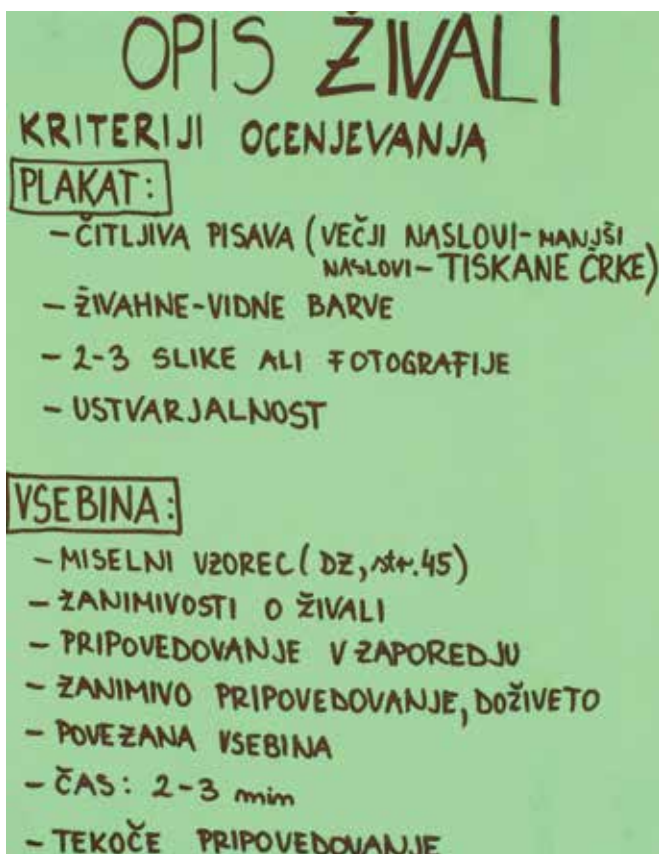 OPIS ŽIVALI
KRITERIJI OCENJEVANJA
PLAKAT:
- ČITLJIVA PISAVA (VEČJI NASLOVI - MANJŠI
NASLOVI - TISKANE ČRKE)
- ŽIVAHNE-VIDNE BARVE
- 2-3 SLIKE ALI FOTOGRAFIJE
- USTVARJALNOST
VSEBINA:
- MISELNI VZOREC (DZ, str. 45)
- ZANIMIVOSTI O ŽIVALI
- PRIPOVEDOVANJE V ZAPOREDJU
- ZANIMIVO PRIPOVEDOVANJE, DOŽIVETO
- POVEZANA VSEBINA
- ČAS: 2-3 min
- TEKOČE PRIPOVEDOVANJE